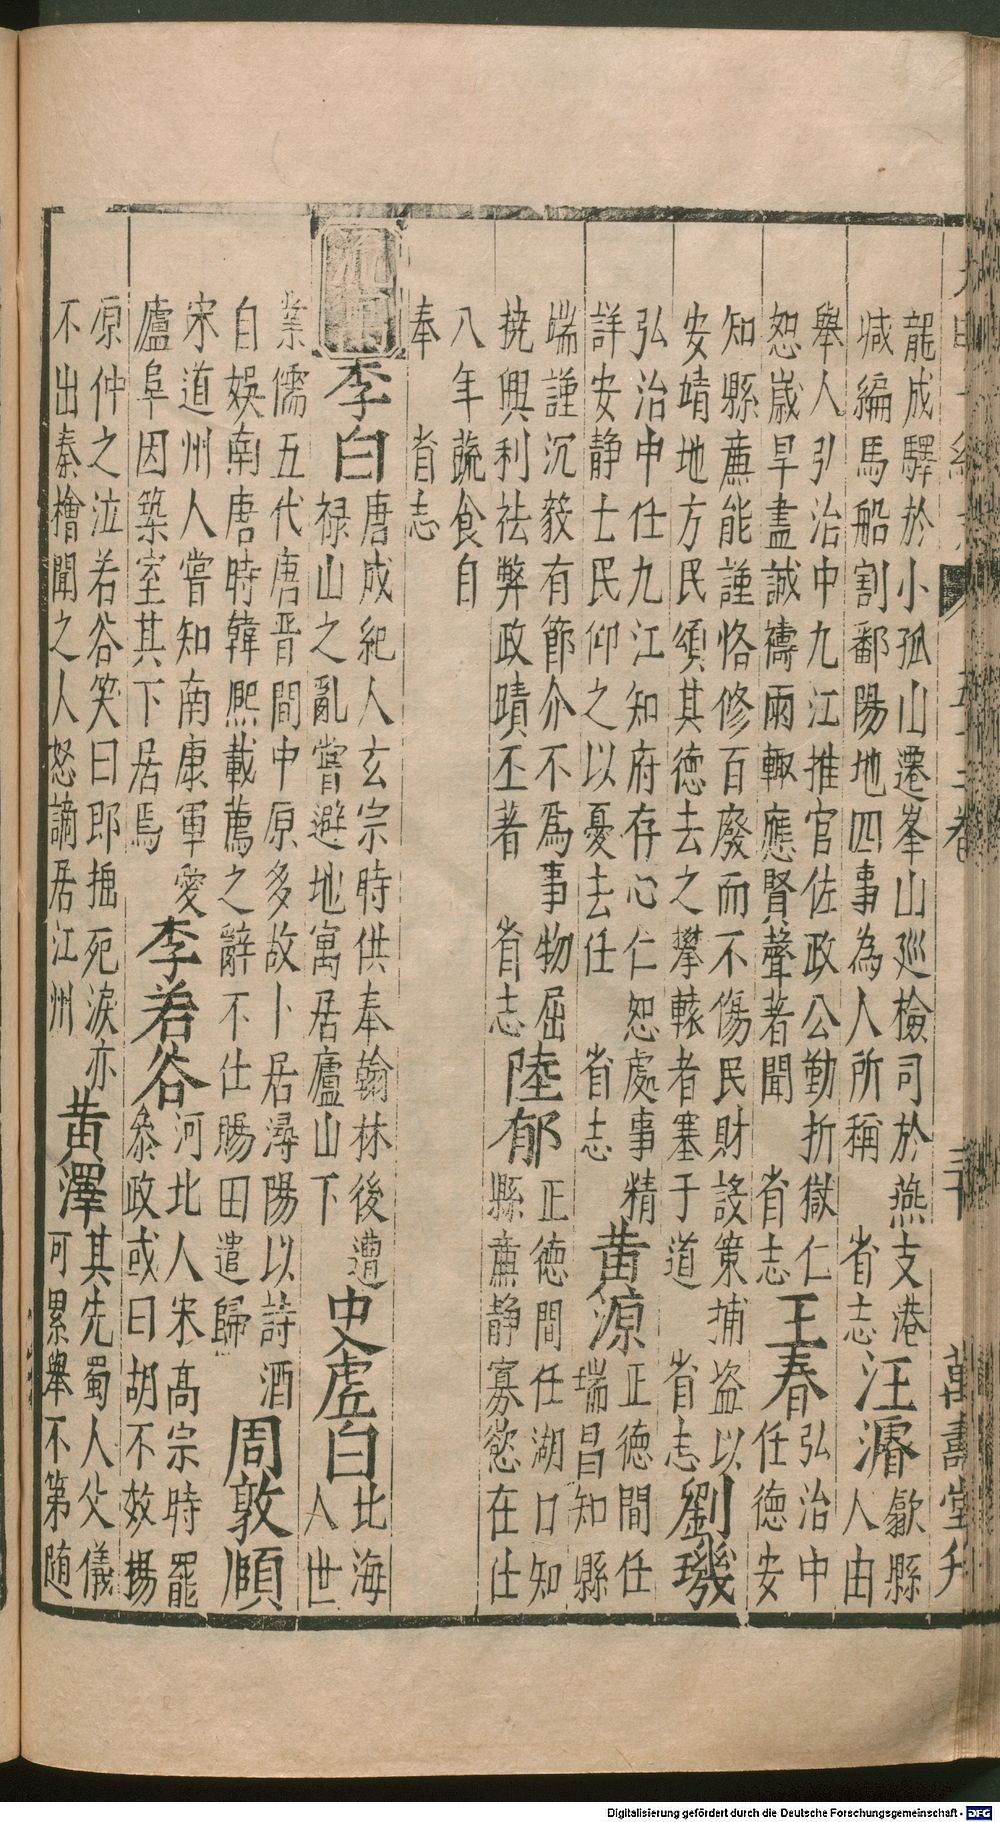 龍成驛於小孤山遷峯山巡檢司於燕支港汪濬歙縣
減編馬船割鄱陽地四事為人所稱　省志　人由
舉人弘治中九江推官佐政公勤折獄仁王春弘治中
恕歲旱盡誠禱雨輙應賢聲著聞　省志　任德安
知縣廉能謹恪修百廢而不傷民財設策捕盗以劉璣
安靖地方民頌其德去之攀轅者塞于道　省志
弘治中任九江知府存心仁恕處事精黄源正德間任
詳安静士民仰之以憂去任　省志　瑞昌知縣
端謹沉毅有節介不為事物屈陸郁正德間任湖口知
撓興利祛弊政蹟丕著　省志　縣廉静寡慾在仕
八年蔬食自
奉　省志
李白唐成紀人玄宗時供奉翰林後遭史虗白北海
禄山之亂嘗避地寓居廬山下　人世
業儒五代唐晋間中原多故卜居潯陽以詩酒周敦頤
自娛南唐時韓熈載薦之辭不仕賜田遣歸
宋道州人嘗知南康軍愛李若谷河北人宋高宗時罷
廬阜因築室其下居焉　叅政或曰胡不效楊
原仲之泣若谷笑曰即搵死淚亦黄澤其先蜀人父儀
不出秦檜聞之人怒謫居江州　可累舉不第随
五十二卷　三十　萬壽堂刋
Digitalisierung gefördert durch die Deutsche Forschungsgemeinschaft - DFG